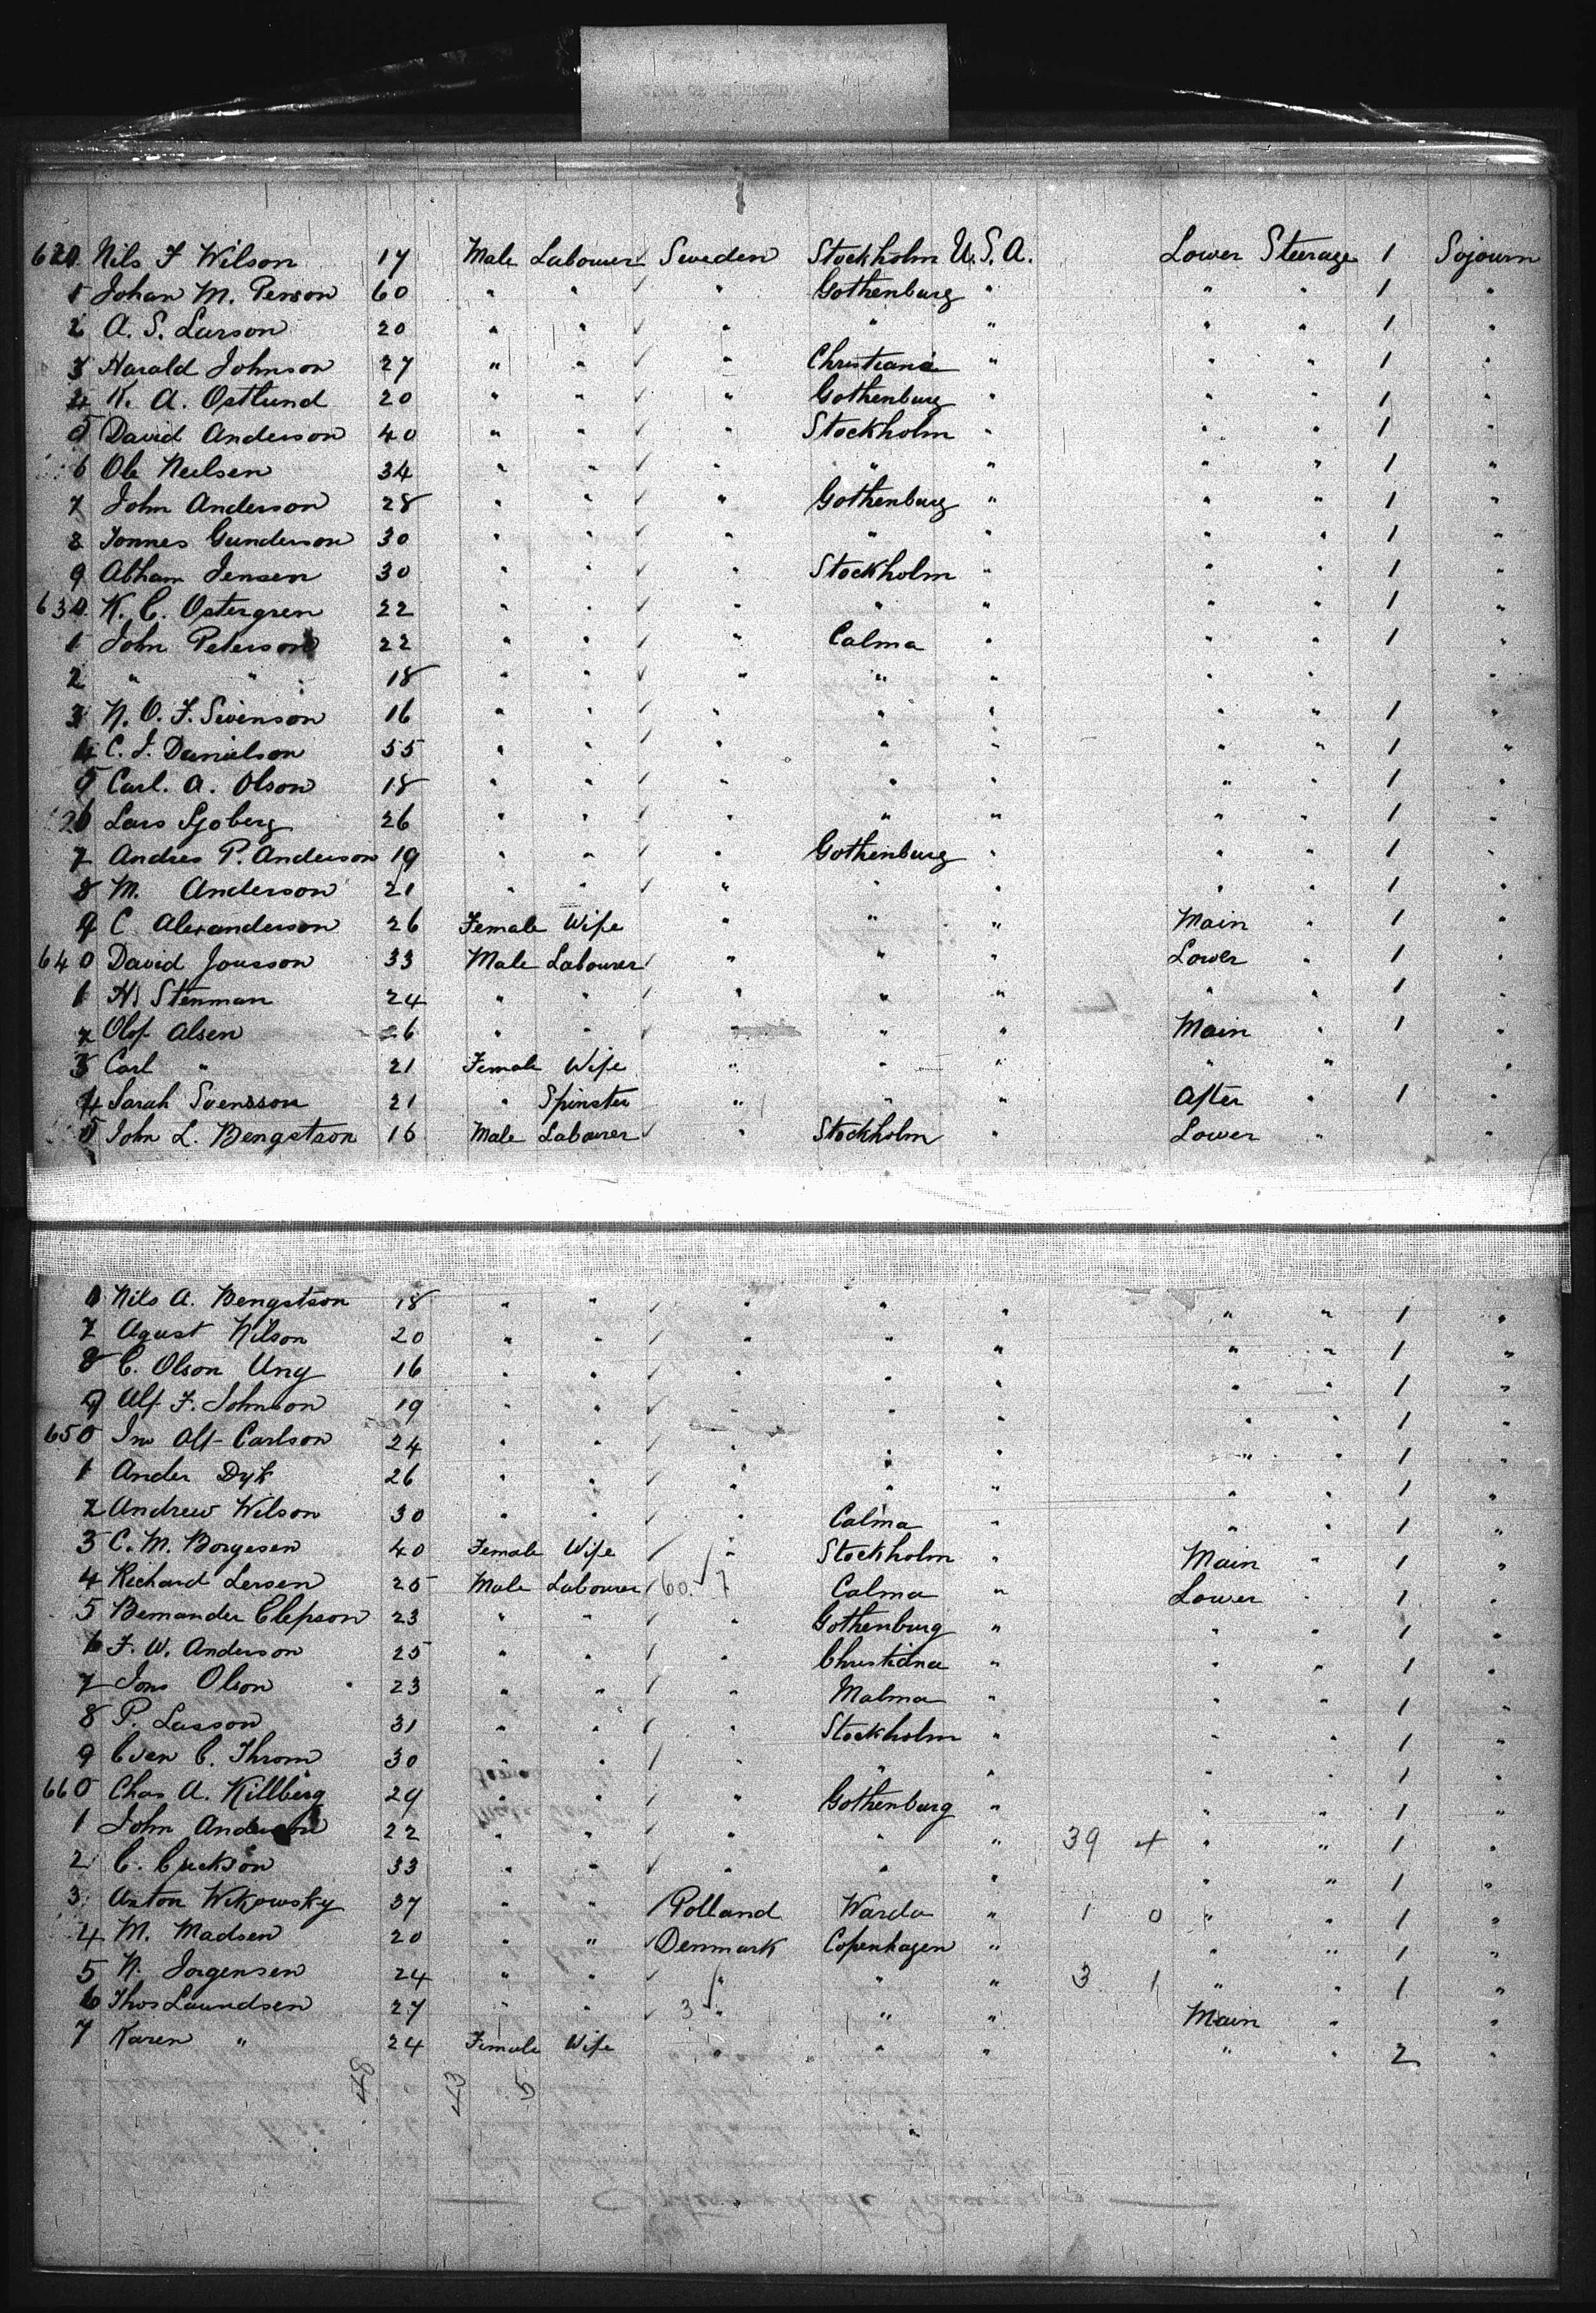 620. Nils F Wilson 17 Male Labourer ✓ Sweden Stockholm U.S.A. Lower Steerage 1 Sojourn
1 Johan M. Person 60 " " ✓ " Gothenburg " " " 1 "
2 A. S. Larson 20 " " ✓ " " " " " 1 "
3 Harald Johnson 27 " " ✓ " Christiana " " " 1 "
4 K. A. Ostlund 20 " " ✓ " Gothenburg " " " 1 "
5 David Anderson 40 " " ✓ " Stockholm " " " 1 "
6 Ole Neilsen 34 " " ✓ " " " " " 1 "
7 John Anderson 28 " " ✓ " Gothenburg " " " 1 "
8 Jonnes Gunderson 30 " " ✓ " " " " " 1 "
9 Abham Jensen 30 " " ✓ " Stockholm " " " 1 "
630. K. C. Ostergren 22 " " ✓ " " " " " 1 "
1 John Peterson 22 " " ✓ " Calma " " " 1 "
2 " " 18 " " ✓ " " " " " "
3 N. O. F. Swenson 16 " " ✓ " " " " " 1 "
4 C. J. Danielson 55 " " ✓ " " " " " 1 "
5 Carl. A. Olson 18 " " ✓ " " " " " 1 "
6 Lars Sjoberg 26 " " ✓ " " " " " 1 "
7 Andres P. Anderson 19 " " ✓ " Gothenburg " " " 1 "
8 M. Anderson 21 " " ✓ " " " " " 1 "
9 C. Alexanderson 26 Female Wife " " " Main " 1 "
640 David Jousson 33 Male Labourer ✓ " " " Lower " 1 "
1 H. Stenman 24 " " ✓ " " " " " 1 "
2 Olof Alsen 26 " " ✓ " " " Main " 1 "
3 Carl " 21 Female Wife " " " " " "
4 Sarah Svensson 21 " Spinster " " " After " 1 "
5 John L. Bengstson 16 Male Labourer ✓ " Stockholm " Lower " "
Nils A. Bengstson 18 " " ✓ " " " " " 1 "
7 Agust Nilson 20 " " ✓ " " " " " 1 "
8 C. Olson Ung 16 " " ✓ " " " " " 1 "
9 Alf F. Johnson 19 " " ✓ " " " " " 1 "
650 Alf Carlson 24 " " ✓ " " " " " 1 "
1 Ander Dyk 26 " " ✓ " " " " " 1 "
2 Andrew Wilson 30 " " ✓ " Calma " " " 1 "
3 C. M. Borgesen 40 Female Wife ✓ " Stockholm " Main " 1 "
4 Richard Lersen 25 Male Labourer ✓ 60. 7 Calma " Lower " 1 "
5 Bemander Clepson 23 " " ✓ " Gothenburg " " " 1 "
6 F. W. Anderson 25 " " ✓ " Christiana " " " 1 "
7 Jons Olson 23 " " ✓ " Malma " " " 1 "
8 P. Lasson 31 " " ✓ " Stockholm " " " 1 "
9 C. Throm 30 " " ✓ " " " " " 1 "
660 Chas A. Killberg 29 " " ✓ " Gothenburg " " " 1 "
1 John Anderson 22 " " ✓ " " " 39 4 " " 1 "
2 C. 33 " " ✓ " " " " " 1 "
3 Anton Wikowsky 37 " " ✓ Polland Warda " 1 0 " " 1 "
4 M. Madsen 20 " " ✓ Denmark Copenhagen " " " 1 "
5 N. Jorgensen 24 " " ✓ " " " 3 1 " " 1 "
6 Thos Laundsen 27 " " ✓ 3 " " " Main " "
7 Karen " 24 Female Wife " " " " " 2 "
48 43 5